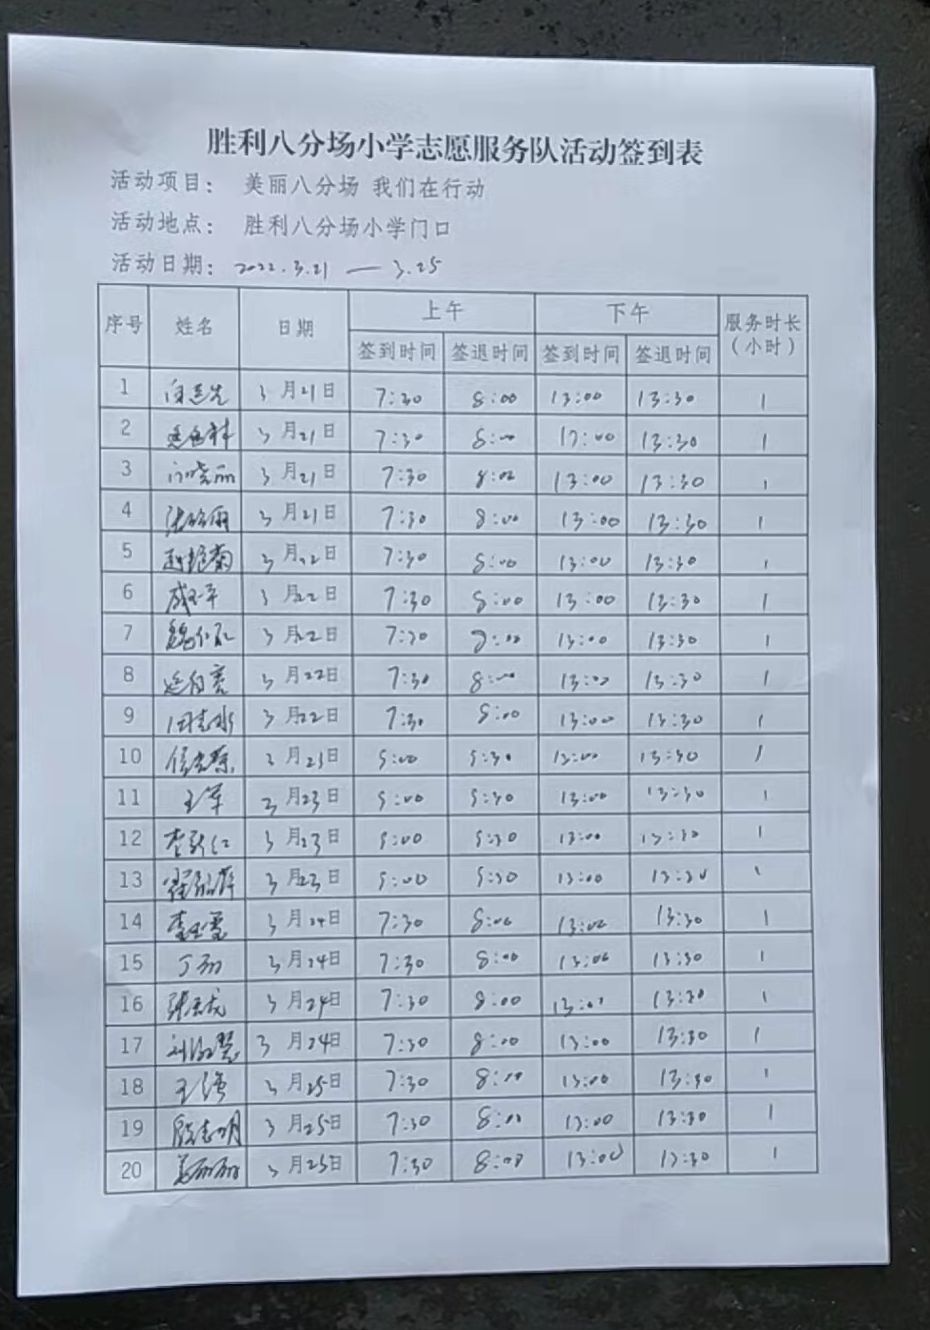 胜利八分场小学志愿服务队活动签到表
活动项目： 美丽八分场 我们在行动
活动地点： 胜利八分场小学门口
活动日期： 2022.3.21 — 3.25
序号 姓名 日期 上午 下午 服务时长（小时）
签到时间 签退时间 签到时间 签退时间
1 3月21日 7:30 8:00 13:00 13:30 1
2 3月21日 7:30 8:00 13:00 13:30 1
3 闫晓丽 3月21日 7:30 8:00 13:00 13:30 1
4 3月21日 7:30 8:00 13:00 13:30 1
5 赵艳菊 3月22日 7:30 8:00 13:00 13:30 1
6 3月22日 7:30 8:00 13:00 13:30 1
7 3月22日 7:30 8:00 13:00 13:30 1
8 3月22日 7:30 8:00 13:00 13:30 1
9 田志水 3月22日 7:30 8:00 13:00 13:30 1
10 3月23日 9:00 9:30 13:00 13:30 1
11 王军 3月23日 9:00 9:30 13:00 13:30 1
12 李新仁 3月23日 9:00 9:30 13:00 13:30 1
13 3月23日 9:00 9:30 13:00 13:30 1
14 3月24日 7:30 8:00 13:00 13:30 1
15 丁丽 3月24日 7:30 8:00 13:00 13:30 1
16 3月24日 7:30 8:00 13:00 13:30 1
17 刘淑慧 3月24日 7:30 8:00 13:00 13:30 1
18 王涛 3月25日 7:30 8:00 13:00 13:30 1
19 殷志明 3月25日 7:30 8:00 13:00 13:30 1
20 姜丽丽 3月25日 7:30 8:00 13:00 13:30 1